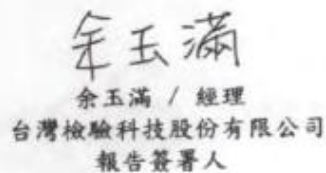 余玉滿
余玉滿 / 經理
台灣檢驗科技股份有限公司
報告簽署人